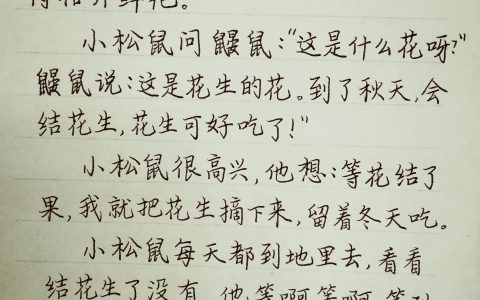 得格外鲜艳。
小松鼠问鼹鼠:"这是什么花呀?"
鼹鼠说:这是花生的花。到了秋天,会
结花生,花生可好吃了!"
小松鼠很高兴,他想:等花结了
果,我就把花生摘下来,留着冬天吃。
小松鼠每天都到地里去,看看
结花生了没有。他等啊等啊,等到